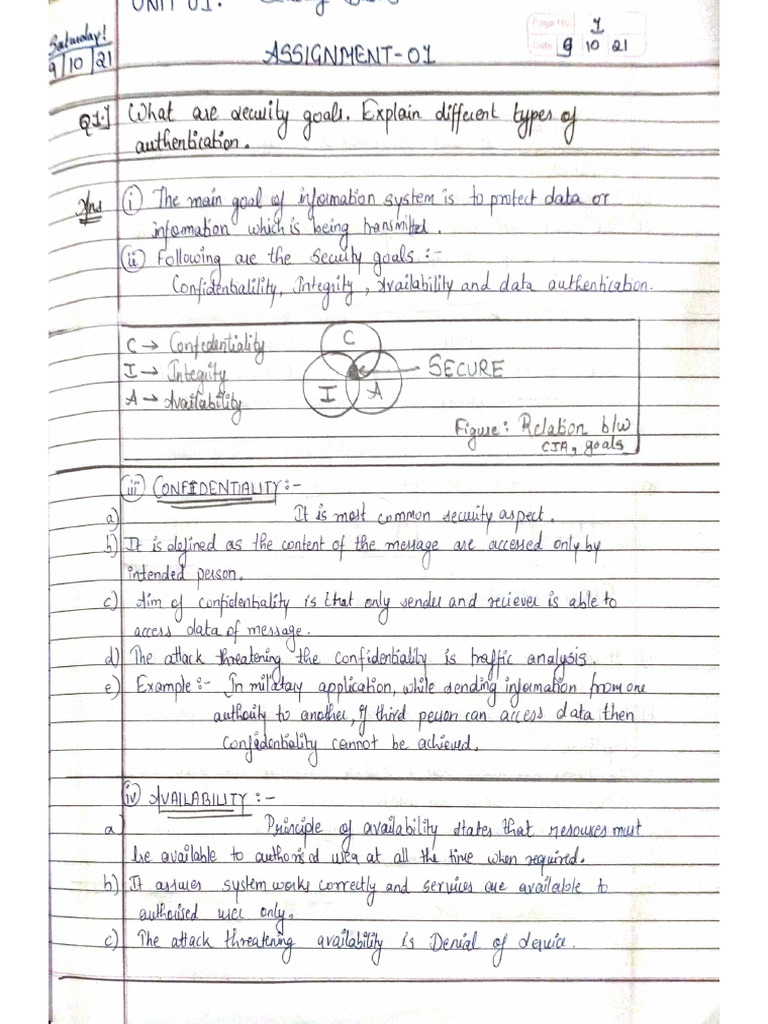 UNIT 01:
Saturday!
9/10/21
ASSIGNMENT-01
Page No. 1
Date 9 10 21
Q1.] What are security goals. Explain different types of
authentication.
Ans (i) The main goal of information system is to protect data or
information which is being transmitted.
(ii) Following are the security goals :-
Confidentialility, Integrity, Availability and data authentication.
C → Confedentiality
I → Integrity
A → Availability
C
I
A
SECURE
Figure: Relation b/w
CIA, goals
(iii) CONFIDENTIALITY :-
a) It is most common security aspect.
b) It is defined as the content of the message are accessed only by
intended person.
c) Aim of confidentiality is that only sender and reciever is able to
access data of message.
d) The attack threatening the confidentiality is traffic analysis.
e) Example :- In military application, while sending information from one
authority to another, if third person can access data then
confidentiality cannot be achieved.
(iv) AVAILABILITY :-
a) Principle of availability states that resources must
be available to authorised user at all the time when required.
b) It assures system works correctly and services are available to
authorised user only.
c) The attack threatening availability is Denial of service.